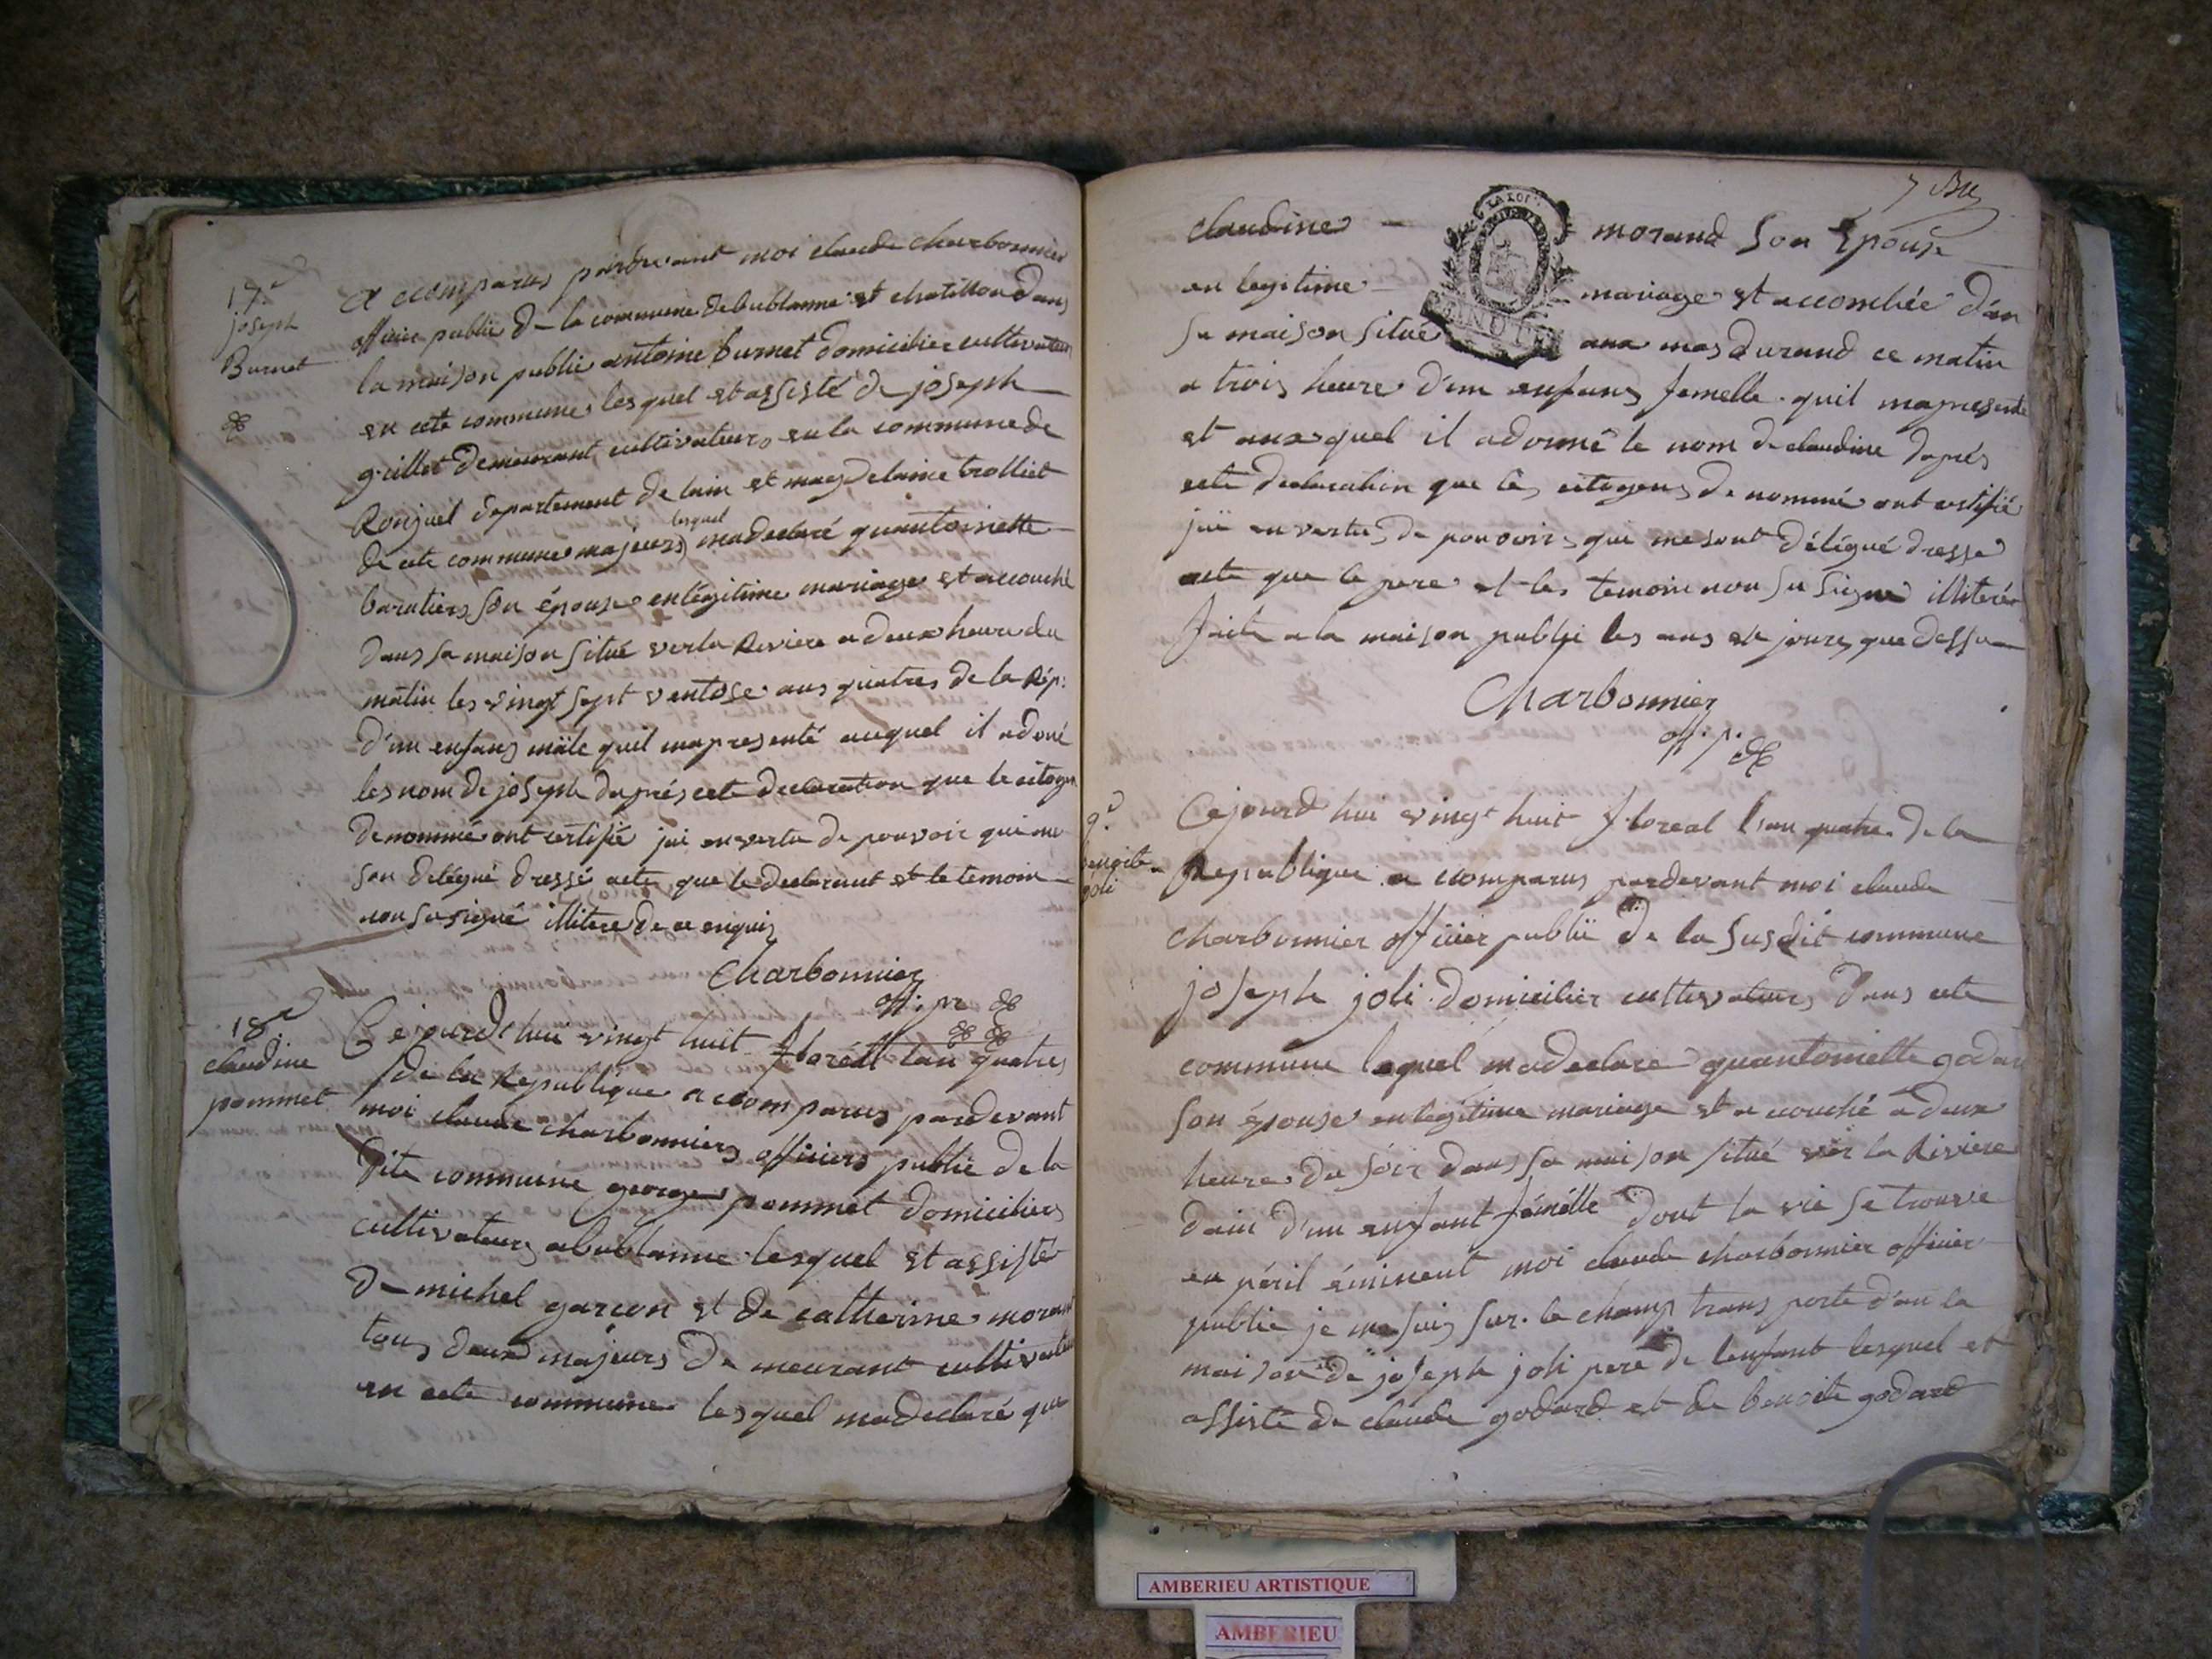 17.e
joseph
Burnet
a ccomparus pardevant moi claude charbonnier
officier public de la commune de bublanne et chatillon dans
la maison public antoine burnet domicilier cultivateur
en cete commune lesquel et assisté de joseph
guillet demeurant cultivateur en la commune de
departement de lain et magdelaine trolliet
lesquel
de cete commune majeurs madeclaré quantoinette
son épouse en légitime mariage et accouché
dans sa maison situé ver la Riviere a deux heure du
matin les vingt sept ventose ans quatres de la Rép:
d'un enfans mâle quil mapresenté auquel il adoné
les nom de joseph daprés cete declaration que le citoyen
denommé ont certifié jai en vertu de pouvoir qui me
son delégué dressé acte que le declarant et le temoin
non su signé illitere de ce enquis
Charbonnier
off. p.
18.e
claudine
pommet
Cejourd'hui vingt huit floréal lan quatres
de la Republique a ccomparus pardevant
moi claude charbonniers officiers public de la
dite commune george pommet domiciliers
cultivateurs a bublanne lesquel et assister
de michel garcon et de catherine morand
tous deux majeurs demeurant cultivateur
en cete commune lesquel madeclaré que
7
claudine morand son Epouse
en legitime mariage et accouchée dan
sa maison situé aux mas durand ce matin
a trois heure d'un enfans femelle quil mapresente
et auxquel il adonné le nom de claudine daprés
cete declaration que les citoyens denommé ont certifié
jai en vertus de pouvoirs qui me sont délégué dresse
acte que le pere et les temoin non su signé illiteré
faite a la maison public les ans et jours que dessu
Charbonnier
off. p.
9.e
benoite
joli
Cejourd'hui vingt huit floreal l'an quatre de la
Republique a ccomparus pardevant moi claude
charbonnier officier public de la susdit commune
joseph joli domicilier cultivateurs dans cete
commune lequel madeclare quantoinette godar
son épouse en legitime mariage et accouché a deux
heure du soir dans sa maison situé ver la Riviere
dain d'un enfant fémélle dont la vie se trouve
en péril éminent moi claude charbonnier officier
public je me suis sur le champ transporté d'an la
maison de joseph joli pere de lenfant lesquel et
assisté de claude godard et de benoite godard
AMBERIEU ARTISTIQUE
AMBERIEU